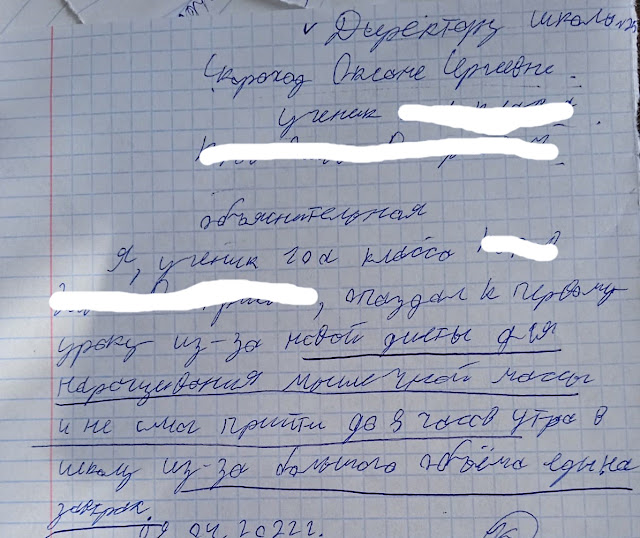 Директору школы
Скороход Оксане Сергеевне
ученик
объяснительная
Я, ученик 10а класса
, опаздал к первому
уроку из-за новой диеты для
наращивания мышечной массы
и не смог прийти до 9 часов утра в
школу из-за большого объёма еды на
завтрак.
09.04.2022г.